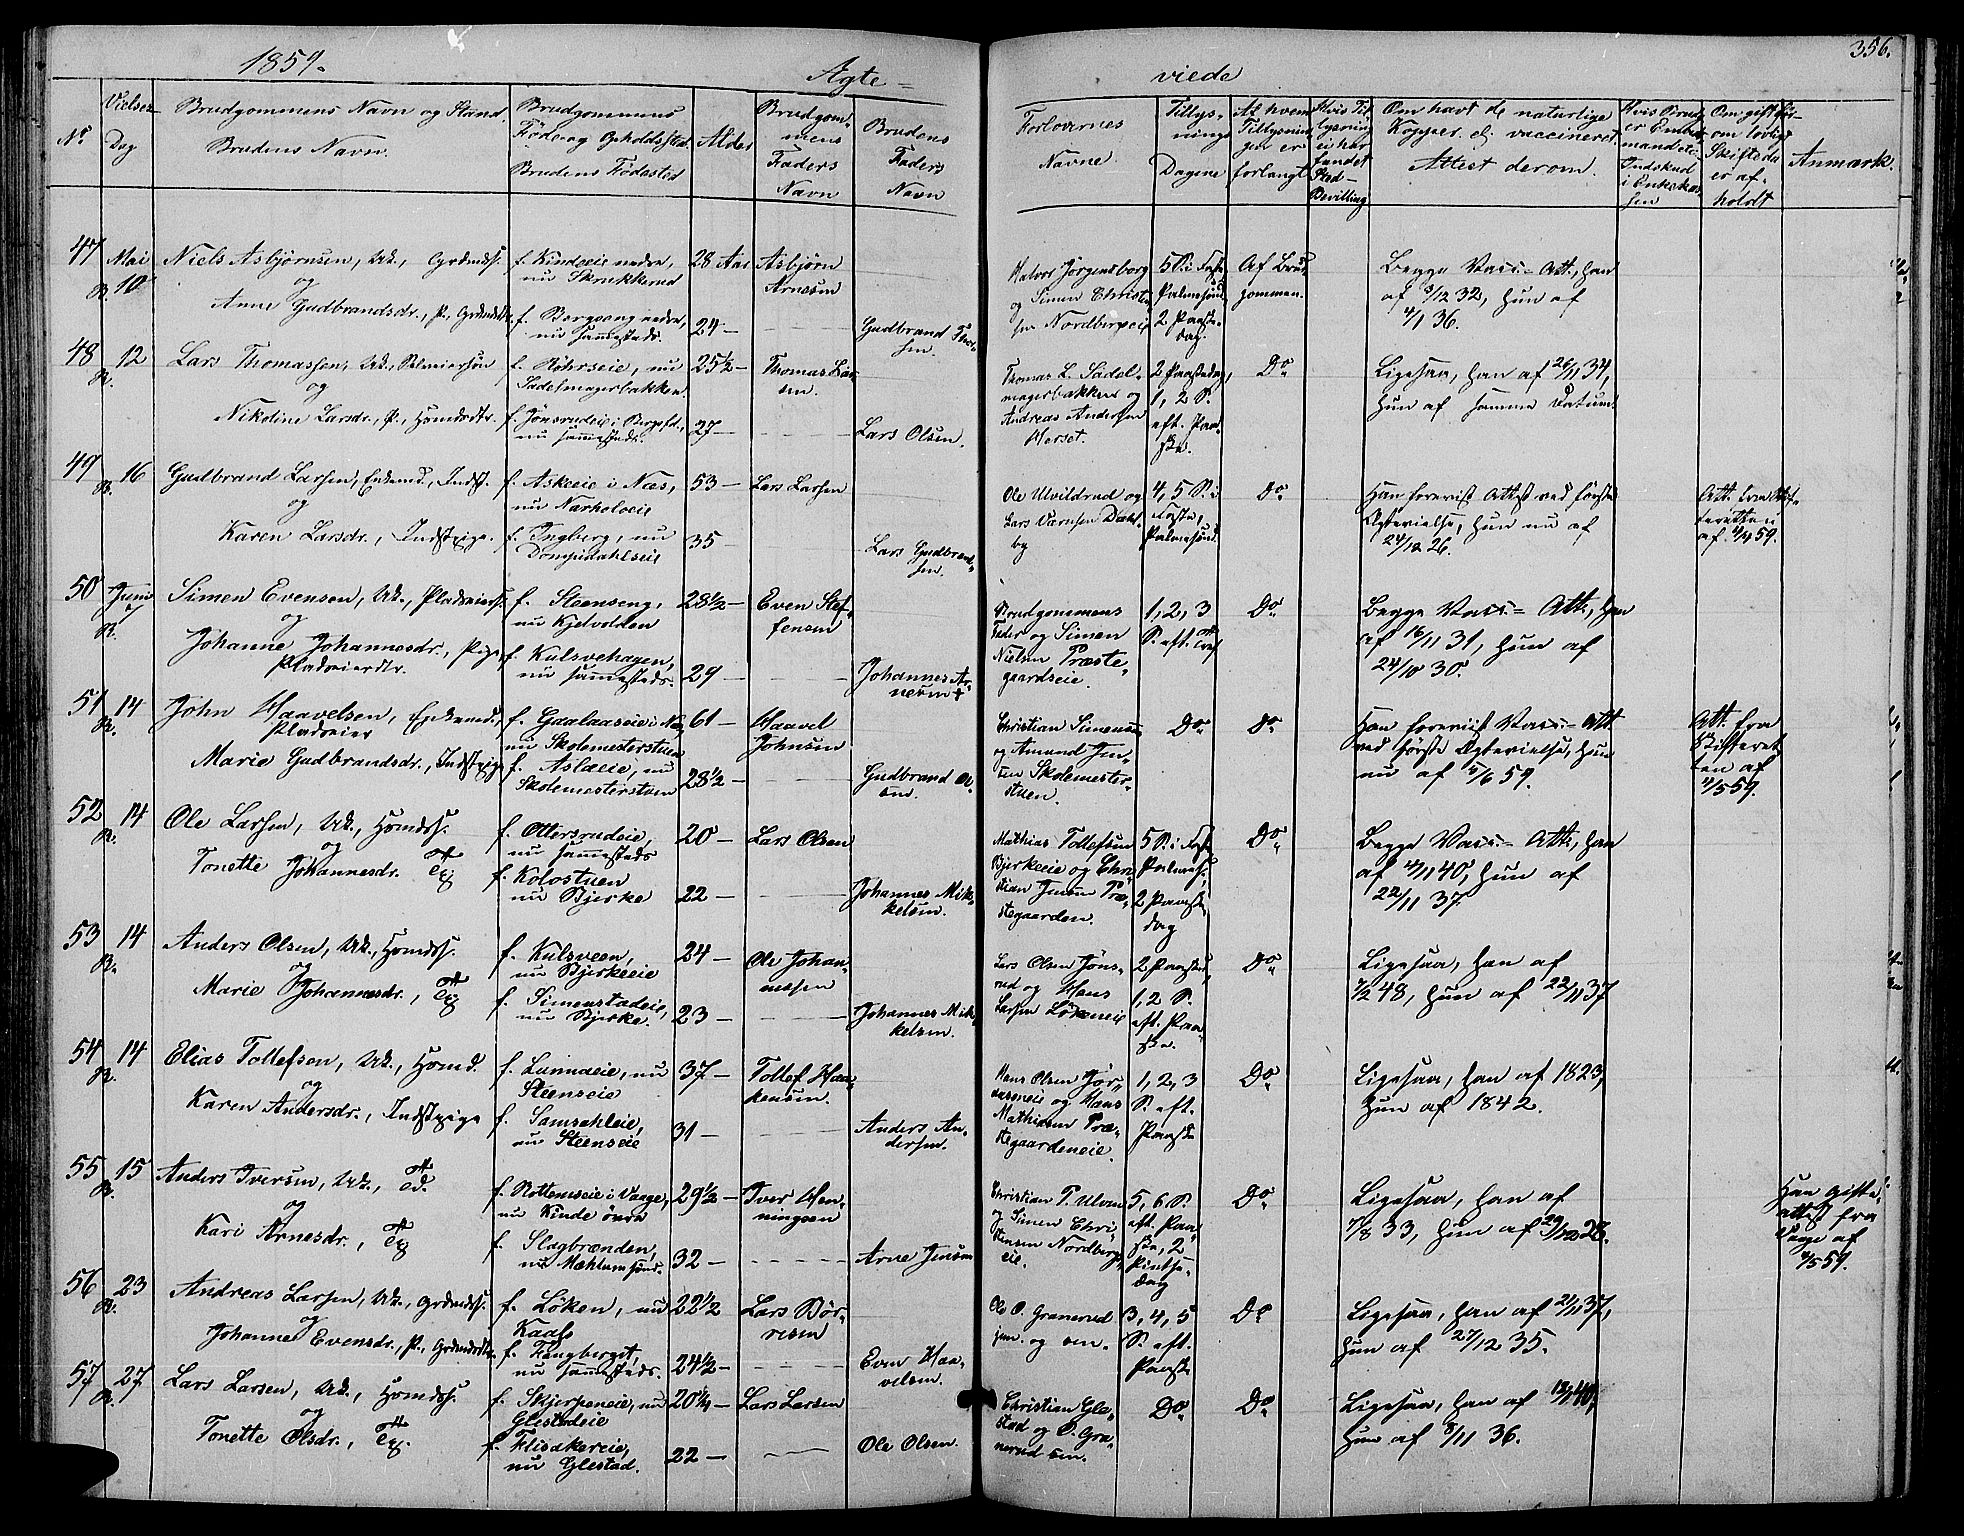 1859.
Ægte-
viede
356.
No
Vielses
Dag
Brudgommens Navn og Stand
Brudens Navn.
Brudgommens
Föde og Opholdssted
Brudens Födested
Alder
Brudgom-
mens
Faders
Navn
Brudens
Faders
Navn
Forlovernes
Navne
Tillys-
nings
Dagene
Af hvem
Tillysnin-
gen er
forlangt
Hvis Til-
lysning
ei har
fundet
Sted-
Bevilling
Om havt de naturlige
Kopper el. vaccineret
Attest derom.
er Embed-
Indskud
i Enkekas-
sen
er af-
holdt
Anmærk.
47 Mai
10
Niels Asbjørnsen, Uk., Grdmds.
og
Anne Gudbrandsdr., P., Grdmdsdtr.
f. Kindeeie nedre,
nu Skrukkerud
f. Bergseng nedre,
nu sammesteds.
28 Aar
24 —
Asbjørn
Arnesen
Gudbrand
sen.
Halvor Jörgensborg
og Simen Christ
sen Nordbergeie
5 S. i Faste
Palmesønd.
2 Paaske-
dag.
Af Brud
gommen.
Begge Vacc.- Att., han
af 3/12 32, hun af
4/1 36.
48 12
Lars Thomassen, Uk.,
og
Nikoline Larsdr., P., Husmdsdtr.
f. Röhrseie, nu
Sadelmagerbakken.
f. Jönsrudeie i
nu sammesteds.
25½ —
27 —
Thomas Lar-
sen.
Lars Olsen.
Thomas L. Sadel-
magerbakken og
Andreas Andersen
Herset.
2 Paaskedag,
1, 2 S.
eft. Paa-
ske.
Do
Ligesaa, han af 26/11 34,
hun af samme Datum.
49 16
Gudbrand Larsen, Enkemd., Indst.
og
Karen Larsdr., Indstpige.
f. Askeeie i Næs,
nu Narholoeie
f. Ingberg, nu
53 —
35 —
Lars Larsen
Lars Gudbrand-
sen.
Ole Ulvildrud og
by
4, 5 S. i
Faste,
Palmesønd.
Do
Han forevist Attest ved første
Ægtevielse, hun nu af
24/12 26.
Att. fra Skif-
teretten
af 4/4 59.
50 Juni
Simen Evensen, Uk., Pladseiers.
og
Johanne Johannesdr., Pige,
Pladseierdtr.
f. Steenseng,
nu Kjelvolden
f. Kulsvehagen,
nu sammesteds.
28½ —
29 —
Even Stef-
fensen
Johannes Ar-
nesen
Brudgommens
Fader og Simen
Nielsen Præste-
gaardseie.
1, 2, 3
S. eft. Traf
Do
Begge Vacc.- Att., han
af 16/11 31, hun af
24/10 30.
51 14
John Haavelsen, Enkemd.,
Pladseier
Marie Gudbrandsdr., Indstpige
f. Gaalaaseie i Næs
nu Skolemesterstuen
f. Aslæeie, nu
Skolemesterstuen
61 —
28½ —
Haavel
Johnsen
Gudbrand Ol-
sen.
Christian Simensen
og Amund Jen-
sen Skolemester-
stuen.
Do
Do
Han forevist Vacc.- Att
ved første Ægtevielse, hun
nu af 4/6 59.
Att. fra
Skifteret
ten af
4/5 59.
52 14
Ole Larsen, Uk., Husmdss.
og
Tonette Johannesdr. Tj
f. Ottersrudeie,
nu sammesteds
f. Kolostuen
nu Bjerke
20 —
22 —
Lars Olsen
Johannes Mik-
kelsen.
Mathias Tollefsen
Bjerkeeie og Chri-
stian Jensen Præ-
stegaarden.
5 S. i Faste
Palmes.,
2 Paaske-
dag
Do
Begge Vacc.- Att., han
af 4/11 40, hun af
22/11 37.
53 14
Anders Olsen, Uk., Husmdss.
og
Marie Johannesdr., Tj
f. Kulsveen,
nu Bjerkeeie
f. Simenstadeie,
nu Bjerke.
24 —
23 —
Ole Johan-
nesen
Johannes Mik-
kelsen.
Lars Olsen Jöns-
rud og Hans
Larsen Lökeneie
2 Paaskedag,
1, 2 S.
eft. Paa-
ske.
Do
Ligesaa, han af
7/2 48, hun af 22/11 37
54 14
Elias Tollefsen, Uk., Husmd.
og
Karen Andersdr., Indstpige
f. Lunnaeie, nu
Steenseie
f. Samsahleie,
nu Steenseie
37 —
31 —
Tollef Haa-
kensen.
Anders An-
dersen.
Hans Olsen Jör-
og Hans
Mathiesen Præ-
stegaardeneie.
1, 2, 3
S. eft.
Paaske
Do
Ligesaa, han af 1823,
hun af 1842.
55 15
Anders Iversen, Uk., Td.
og
Kari Arnesdr., Tj
f. Rottemseie i Vaage,
nu Kinde övre
f. Slagbrænden,
nu Mæhlumsönd.
29½ —
32 —
Iver Hen-
ningsen
Arne Jensen
Christian P. Ulven
og Simen Chri-
stensen Nordberg
eie.
5, 6 S.
eft. Paa
ske, 2
Pintse-
dag
Do
Ligesaa, han af
7/8 33, hun af 29/12 28.
Han gifte-
attest fra
Vaage af
4/5 59.
56 23
Andreas Larsen, Uk., Grdmdss.
og
Johanne Evensdr., P., Grdmdsdtr.
f. Löken, nu
Kaals
f. Fangberget,
nu sammesteds.
22½
24½ —
Lars Bör-
resen
Even Haa-
velsen.
Ole O. Granerud
jun. og sen.
3, 4, 5
S. eft.
Paaske
Do
Ligesaa, han af 21/11 37,
hun af 27/12 35.
57 27
Lars Larsen, Uk., Husmdss.
og
Tonette Olsdr., Tj.
f. Skjerpeneie, nu
Glestadeie
f. Flisakereie,
nu Glestad.
20¼ —
22 —
Lars Larsen
Ole Olsen.
Christian Gle-
stad og O. Gra-
nerud sen.
Do
Do
Ligesaa, han af
hun af 8/11 36.